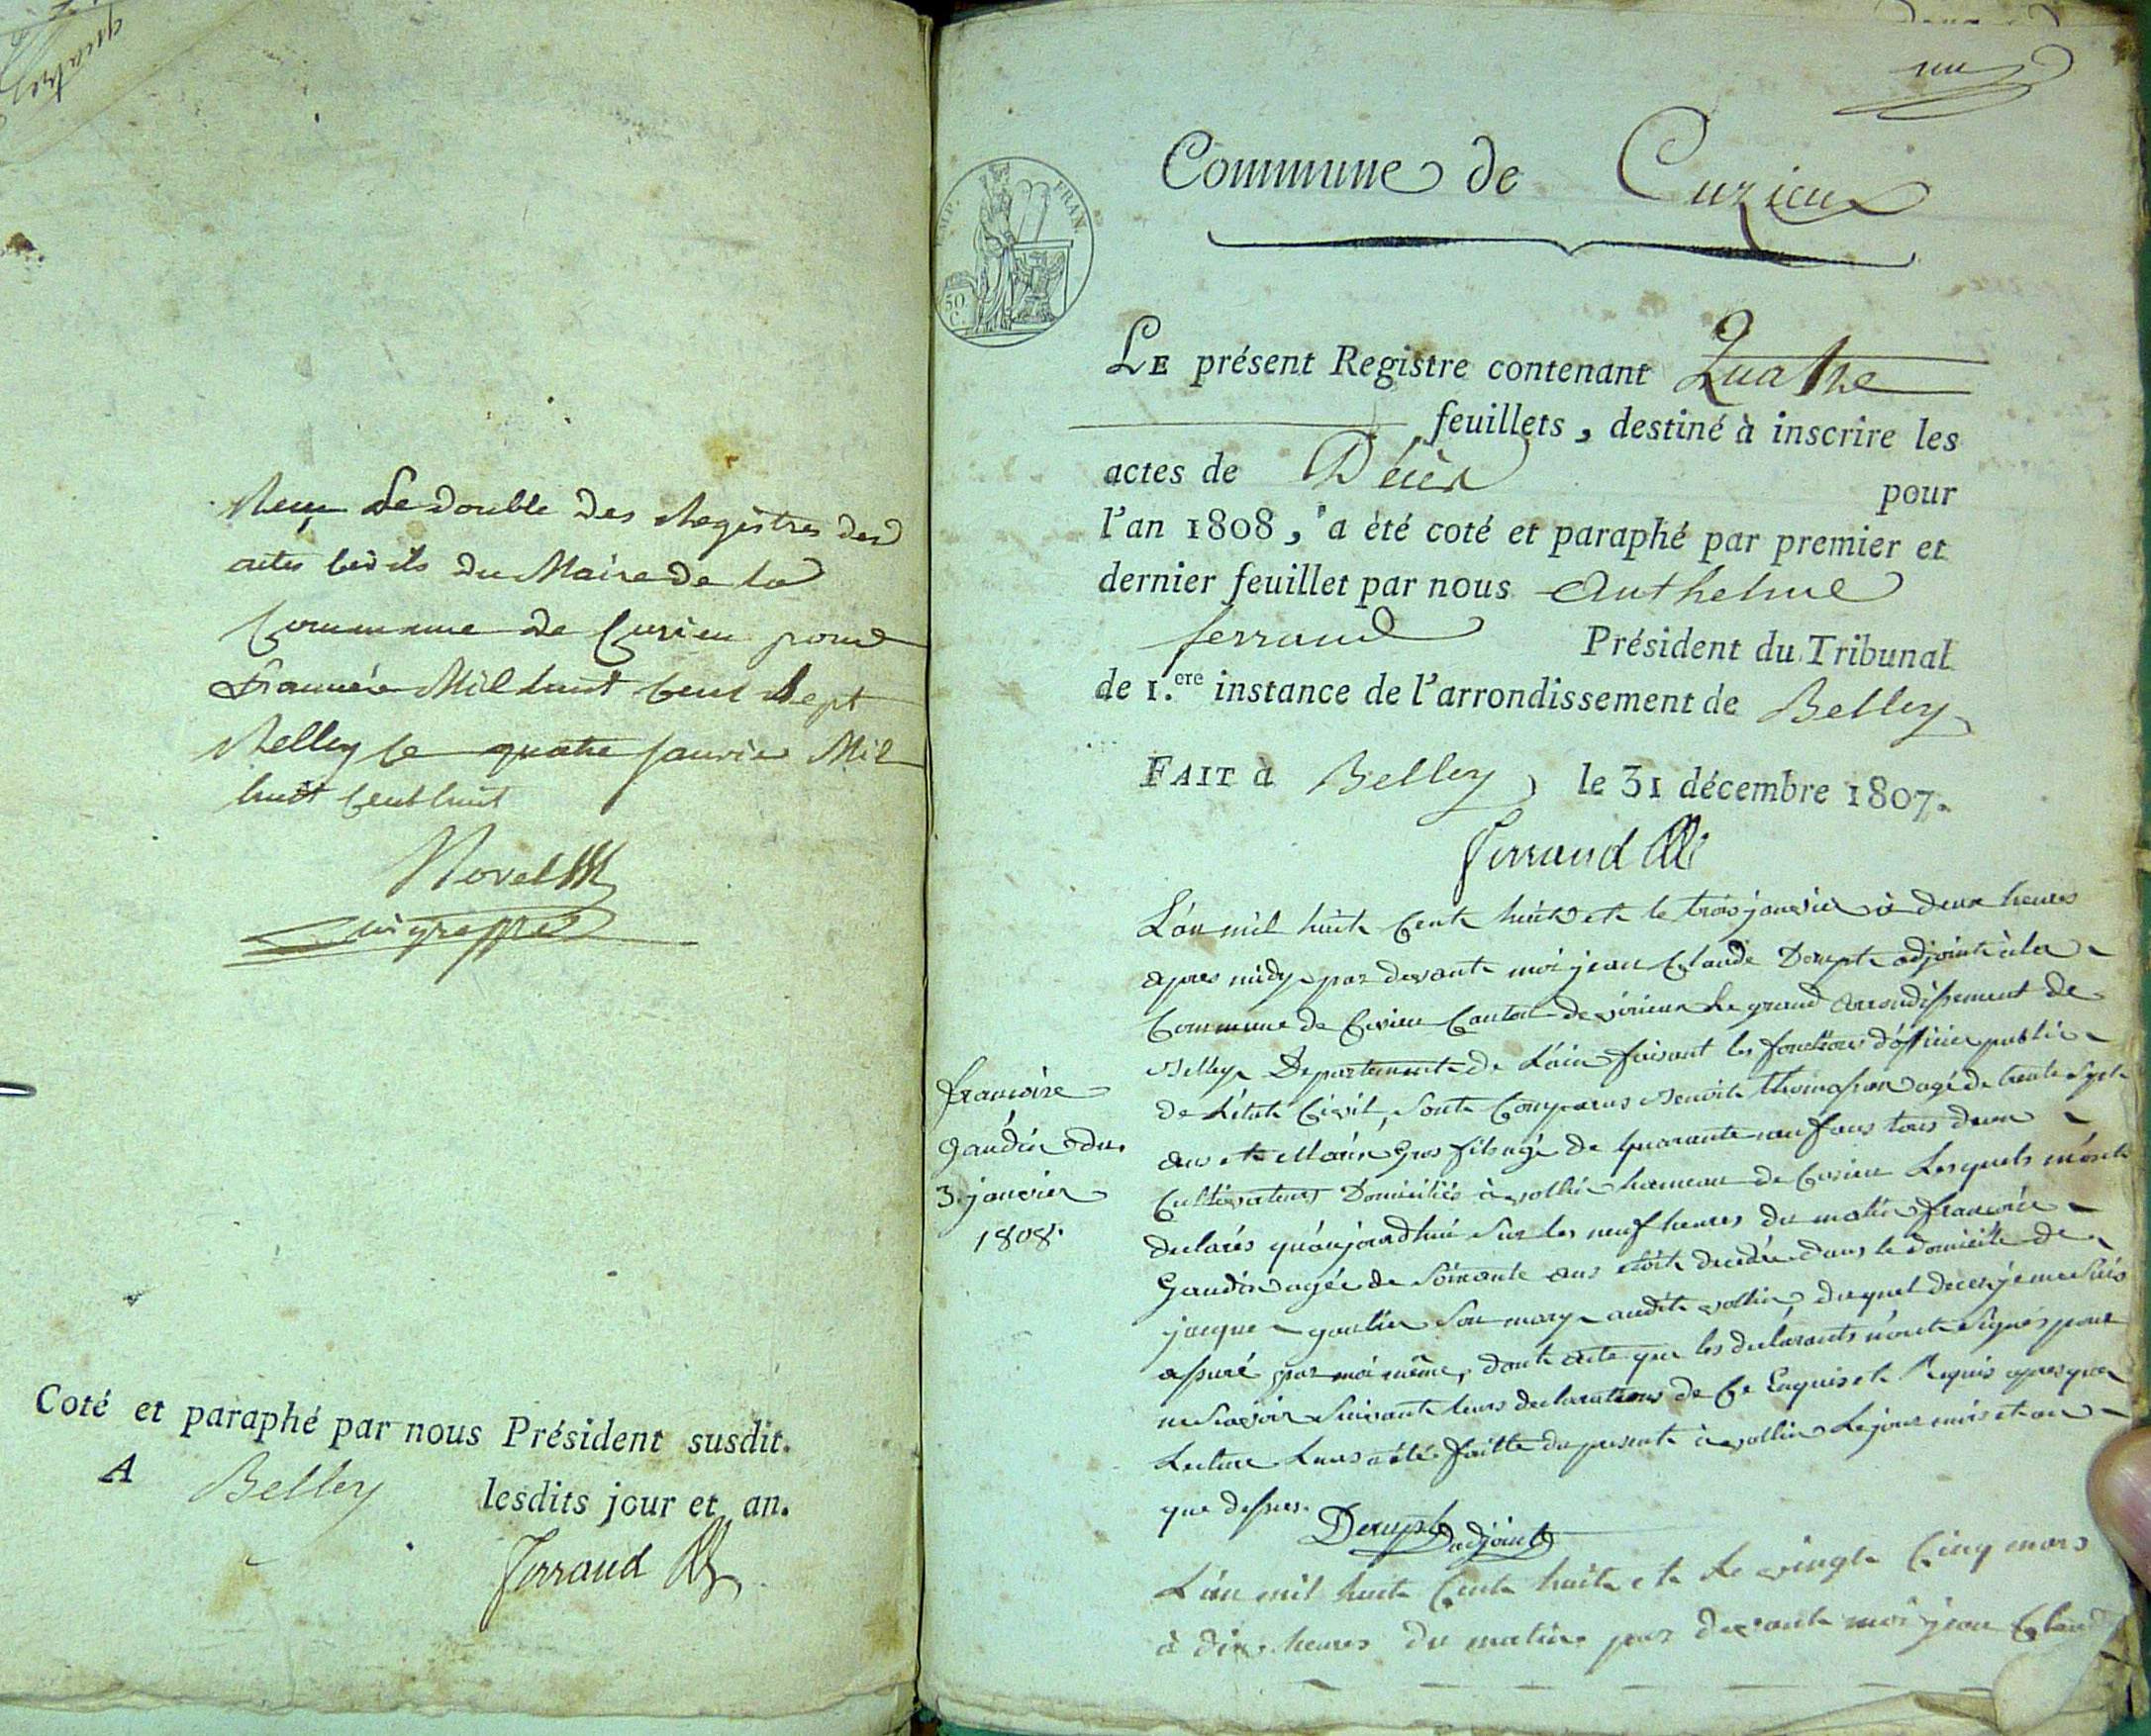 quatre
Reçu Le double des Registres des
actes Civils du Maire de la
Commune de Cuzieu pour
L'année Mil huit Cent Sept
Belley le quatre Janvier Mil
huit Cent huit
Coté et paraphé par nous Président susdit.
A Belley lesdits jour et an.
Ferrand
un
Commune de Cuzieux
EMP. FRAN.
50
C.
LE présent Registre contenant Quatre
feuillets, destiné à inscrire les
actes de Décès pour
l'an 1808, a été coté et paraphé par premier et
dernier feuillet par nous Anthelme
ferrand Président du Tribunal
de 1.ere instance de l'arrondissement de Belley
FAIT à Belley, le 31 décembre 1807.
Ferrand
L'an mil huit Cent huit et le trois janvier à deux heures
apres midy par devant moi jean Claude Dempt adjoint à la
Commune de Cusieu Canton de virieux Le grand arrondissement de
Belley Departement de L'ain faisant les fonctions d'officier public
de L'état Civil, sont Comparus Benoit thomasson agé de trente sept
ans et Marin Gros fils agé de quarante neuf ans tous deux
Cultivateurs Domiciliés à vollin hameau de Cusieu Lesquels m'ont
declarés qu'aujourdhui Sur les neuf heures du matin francoise
Gaudin agée de soixante ans étoit decedée dans le domicile de
jacque gautier son mary audit vollin, duquel deces je me suis
assuré par moi même, dont acte que les declarants n'ont signés pour
ne scavoir suivant leurs declarations de Ce Enquis et Requis apres que
Lecture Leurs a été faitte du present à vollin Le jour mois et an
que dessus.
Dempt adjoint
francoise
gaudin du
3. janvier
1808.
L'an mil huit Cent huit et le vingt Cinq mars
à dix heures du matin par devant moi jean Claude